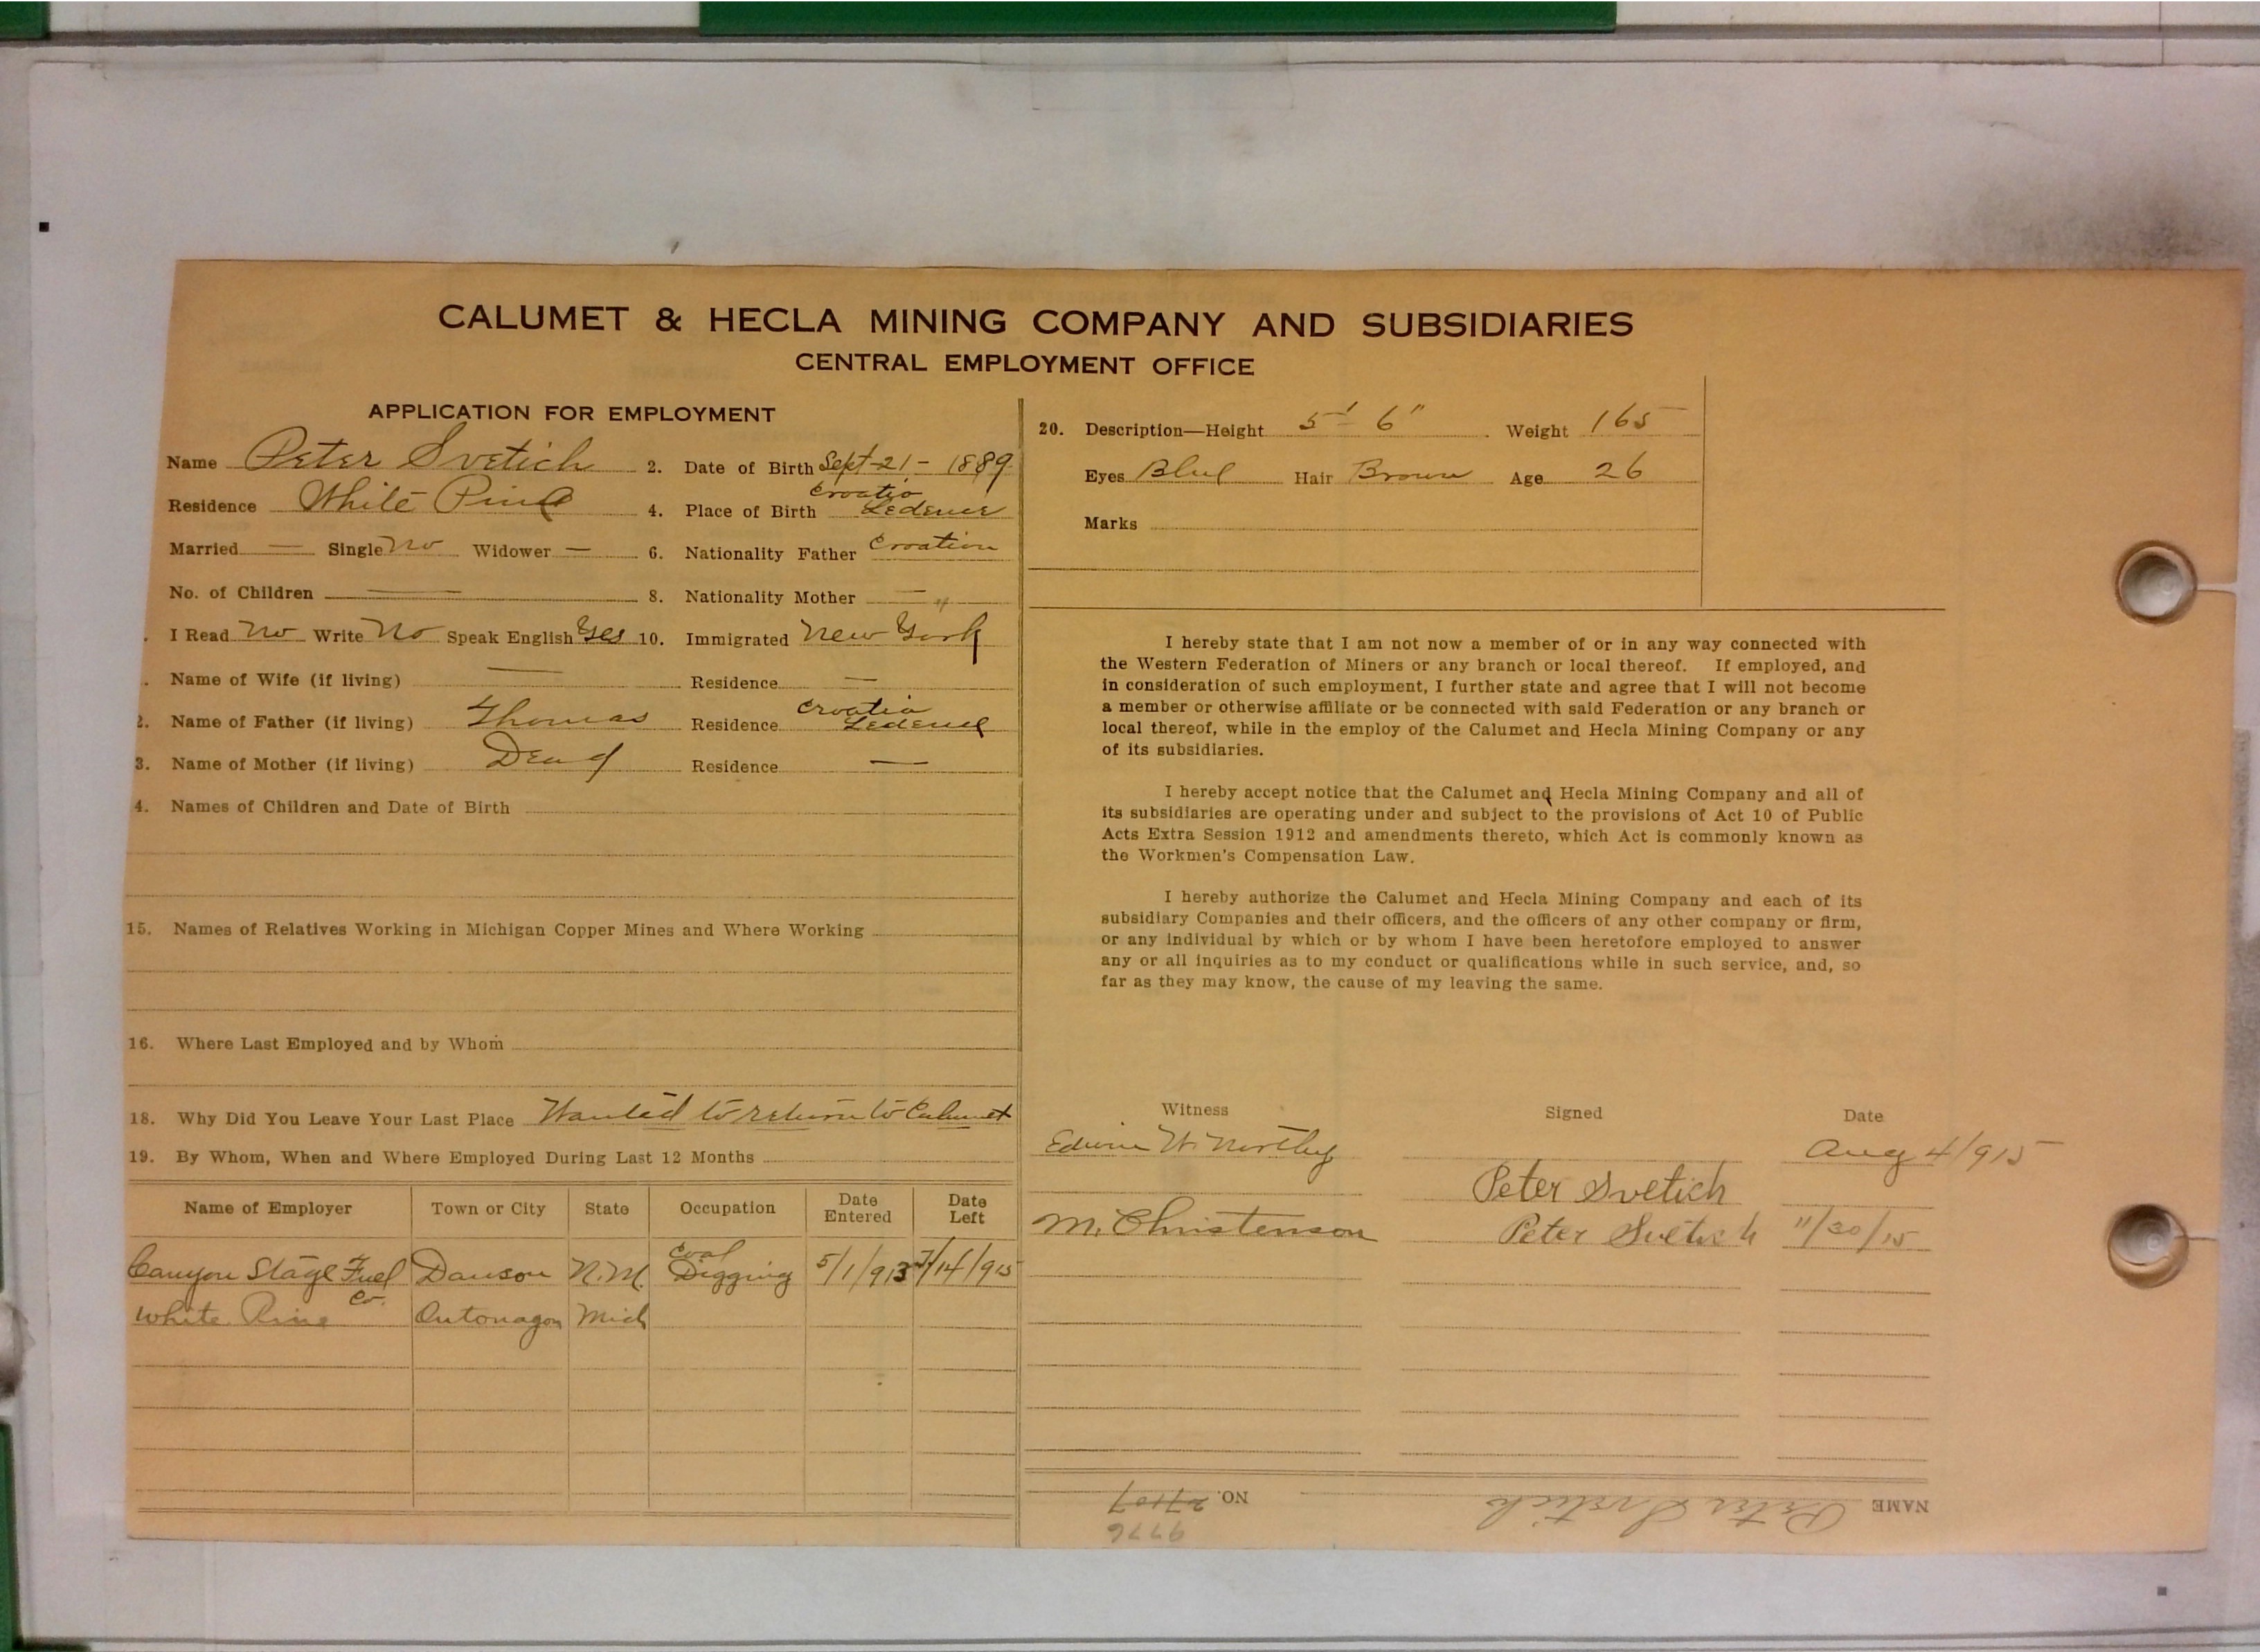 CALUMET & HECLA MINING COMPANY AND SUBSIDIARIES
CENTRAL EMPLOYMENT OFFICE
APPLICATION FOR EMPLOYMENT
Name Peter Svetich 2. Date of Birth Sept-21-1889
Residence White Pine 4. Place of Birth Croatia Ledenice
Married — Single no Widower — 6. Nationality Father Croation
No. of Children — 8. Nationality Mother — "
I Read no Write no Speak English Yes 10. Immigrated New York
Name of Wife (if living) — Residence —
2. Name of Father (if living) Thomas Residence Croatia Ledenice
3. Name of Mother (if living) Dead Residence —
4. Names of Children and Date of Birth
15. Names of Relatives Working in Michigan Copper Mines and Where Working
16. Where Last Employed and by Whom
18. Why Did You Leave Your Last Place Wanted to return to Calumet
19. By Whom, When and Where Employed During Last 12 Months
Name of Employer Town or City State Occupation Date Entered Date Left
Canyon Stage Fuel Co. Dawson N.M. Coal Digging 5/1/913 7/14/915
White Pine Ontonagon Mich
20. Description—Height 5' 6" Weight 165
Eyes Blue Hair Brown Age 26
Marks
I hereby state that I am not now a member of or in any way connected with
the Western Federation of Miners or any branch or local thereof. If employed, and
in consideration of such employment, I further state and agree that I will not become
a member or otherwise affiliate or be connected with said Federation or any branch or
local thereof, while in the employ of the Calumet and Hecla Mining Company or any
of its subsidiaries.
I hereby accept notice that the Calumet and Hecla Mining Company and all of
its subsidiaries are operating under and subject to the provisions of Act 10 of Public
Acts Extra Session 1912 and amendments thereto, which Act is commonly known as
the Workmen's Compensation Law.
I hereby authorize the Calumet and Hecla Mining Company and each of its
subsidiary Companies and their officers, and the officers of any other company or firm,
or any individual by which or by whom I have been heretofore employed to answer
any or all inquiries as to my conduct or qualifications while in such service, and, so
far as they may know, the cause of my leaving the same.
Witness Signed Date
Edwin W. Northey Aug 4/915
Peter Svetich
M. Christenson Peter Svetich 11/30/15
NAME Peter Svetich NO. 27107
9776